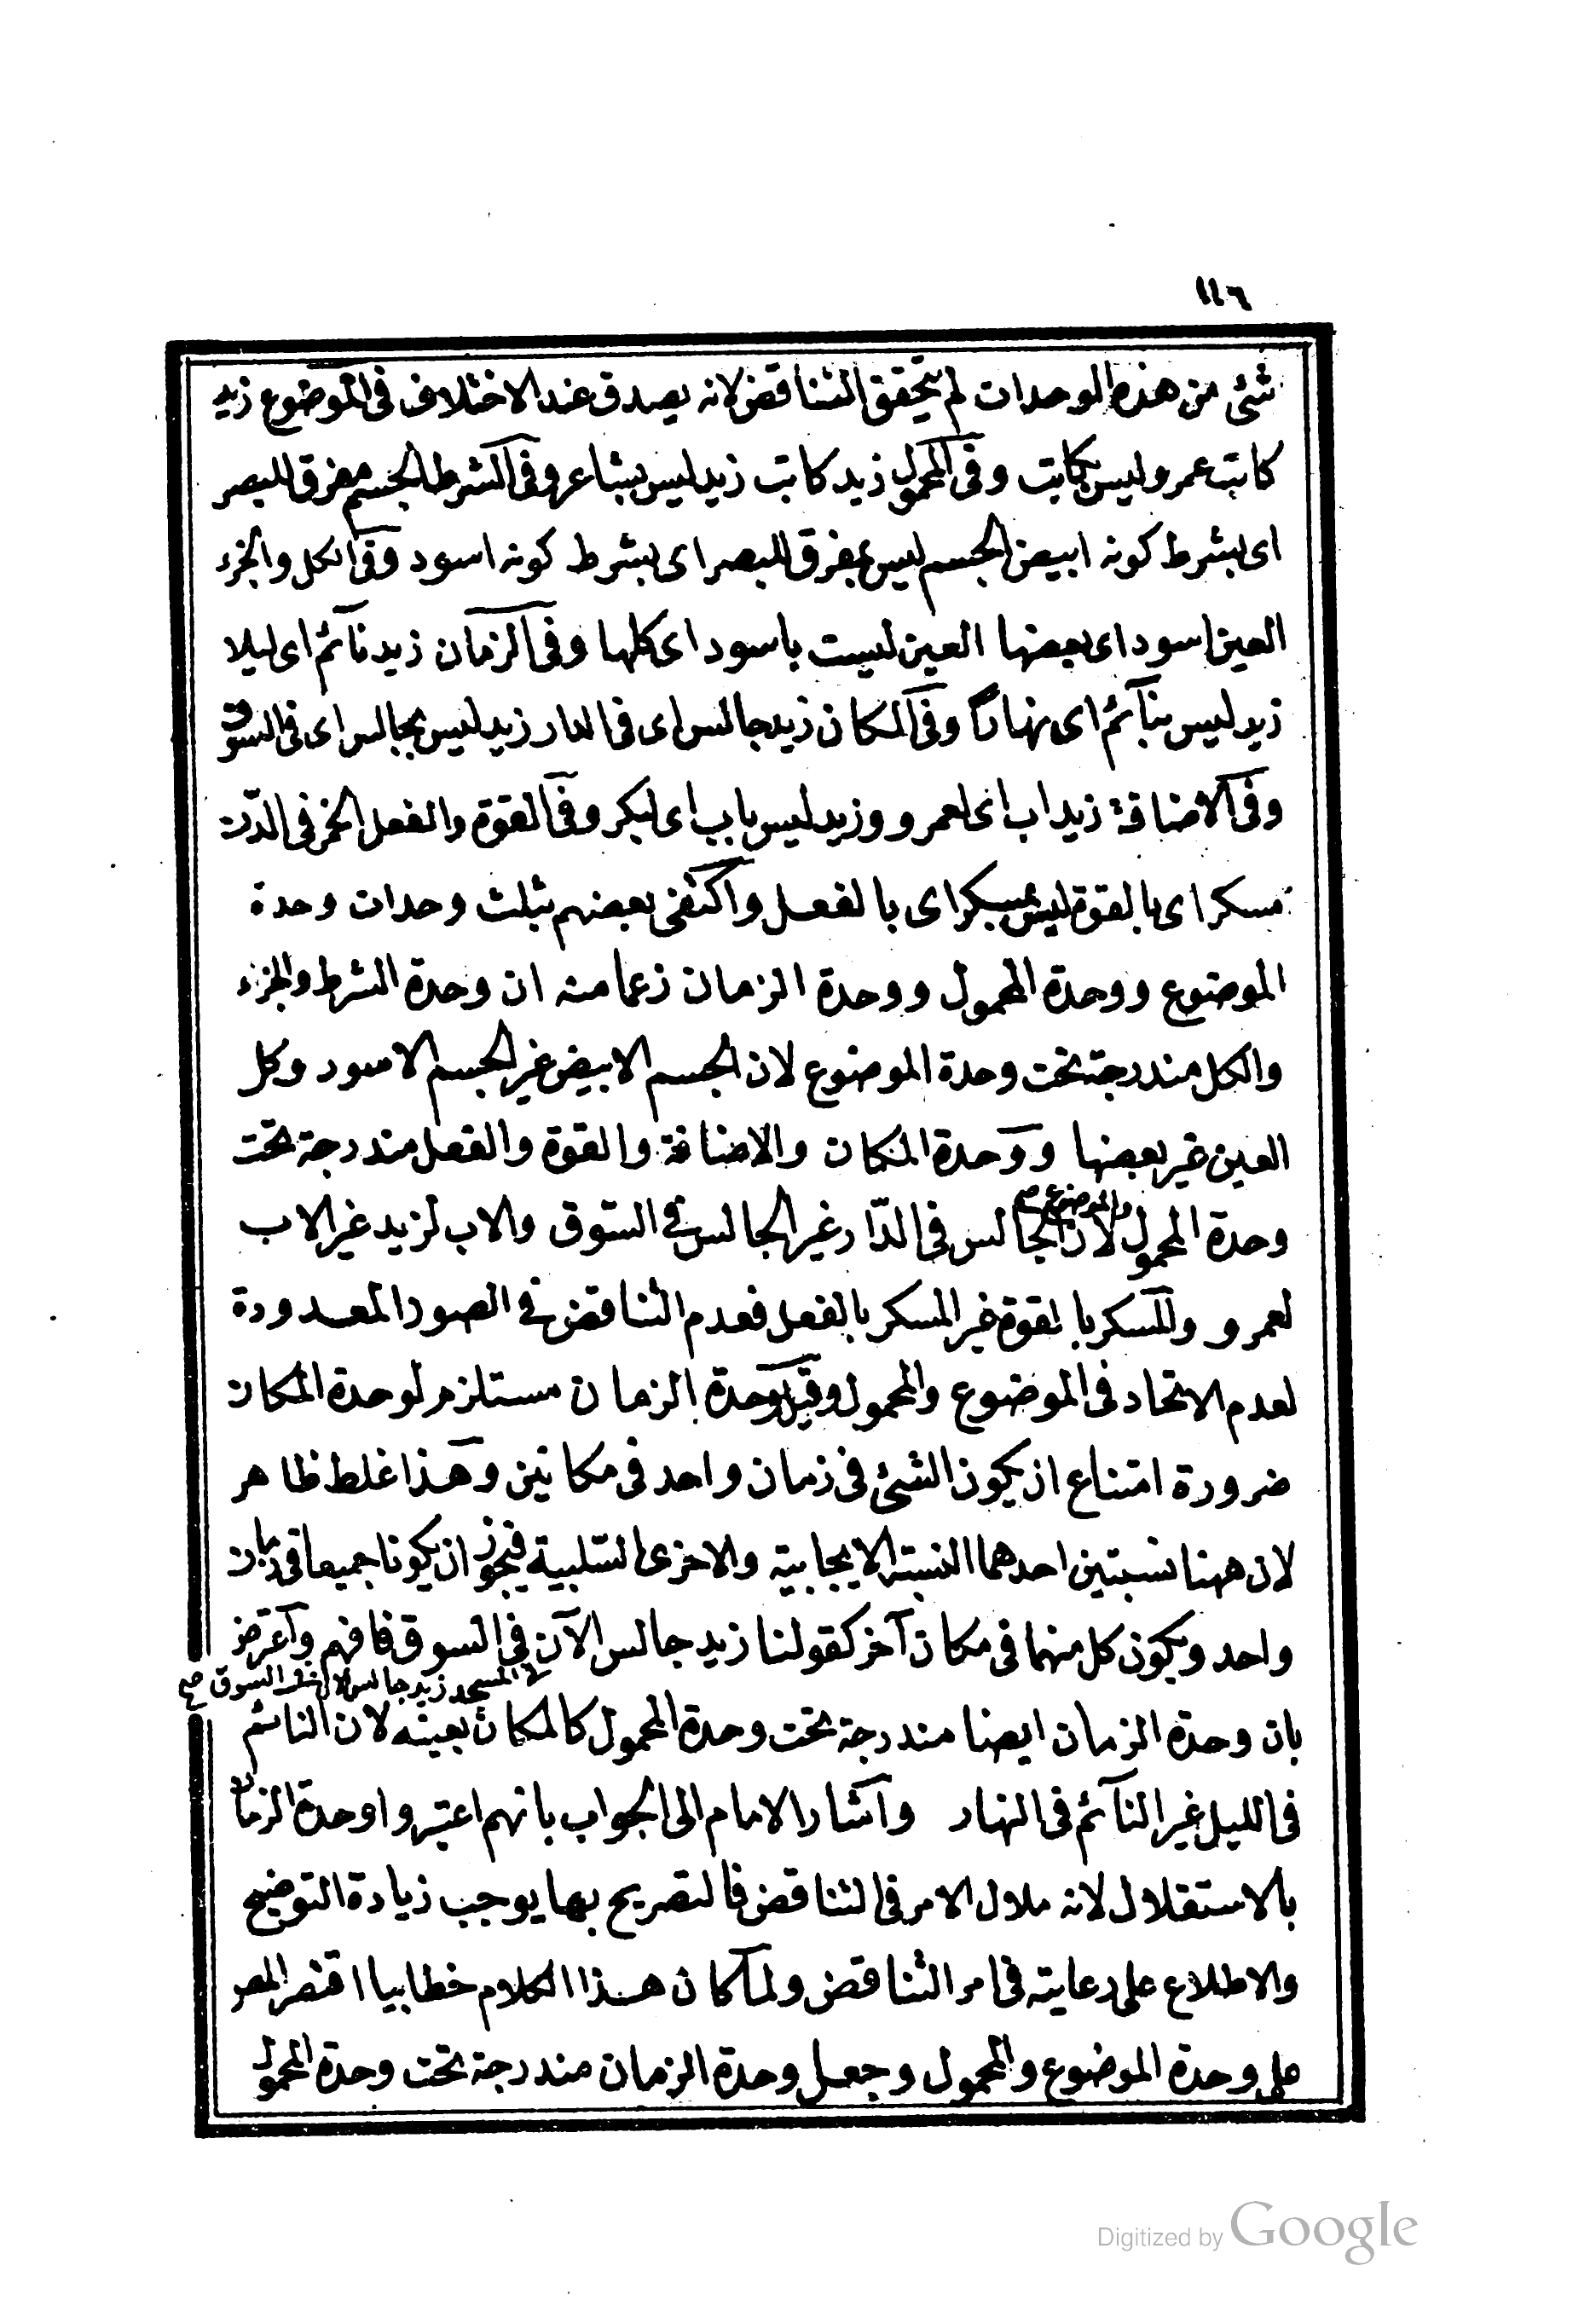 ١١٦
شئ من هذه الوحدات لم يتحقق التناقض لانه يصدق عند الاختلاف فى الموضوع زيد
كاتب عمرو ليس بكاتب وفى المحمول زيد كاتب زيد ليس بشاعر وفى الشرط الجسم مفرق للبصر
اى بشرط كونه ابيض الجسم ليس بمفرق للبصر اى بشرط كونه اسود وفى الكل والجزء
العين اسود اى بعضها العين ليست باسود اى كلها وفى الزمان زيد نآئم اى ليلا
زيد ليس بنآئم اى نهارًا وفى المكان زيد جالس اى فى الدار زيد ليس بجالس اى فى السوق
وفى الاضافة زيد اب اى لعمرو وزيد ليس باب اى لبكر وفى القوة والفعل الخمر فى الدّن
مسكر اى بالقوة ليس بمسكر اى بالفعل واكتفى بعضهم بثلث وحدات وحدة
الموضوع ووحدة المحمول ووحدة الزمان زعما منه ان وحدة الشرط والجزء
والكل مندرجة تحت وحدة الموضوع لان الجسم الابيض غير الجسم الاسود وكل
العين غير بعضها ووحدة المكان والاضافة والقوة والفعل مندرجة تحت
والموضوع صح
وحدة المحمول لان الجالس فى الدّار غير الجالس فى السّوق والاب لزيد غير الاب
لعمرو وللسكر بالقوة غير المسكر بالفعل فعدم التناقض فى الصور المعدودة
لعدم الاتحاد فى الموضوع والمحمول وقيل وحدة الزمان مستلزم لوحدة المكان
ضرورة امتناع ان يكون الشئ فى زمان واحد فى مكانين وهذا غلط ظاهر
لان ههنا نسبتين احدهما النسبة الايجابية والاخرى السّلبية فيجوز ان يكونا جميعا فى زمان
واحد ويكون كل منهما فى مكان آخر كقولنا زيد جالس الآن فى السوق فافهم واعترض
لا المسجد زيد جالس الآن فى السوق صح
بان وحدة الزمان ايضا مندرجة تحت وحدة المحمول كالمكان بعينه لان النائم
فى الليل غير النآئم فى النهار وآشار الامام الى الجواب بانهم اعتبروا وحدة الزمان
بالاستقلال لانه ملال الامر فى التناقض فالتصريح بها يوجب زيادة التوضيح
والاطلاع على رعايته فى امر التناقض ولما كان هذا الكلام خطابيا اقتصر المص
على وحدة الموضوع والمحمول وجعل وحدة الزمان مندرجة تحت وحدة المحمول
Digitized by Google